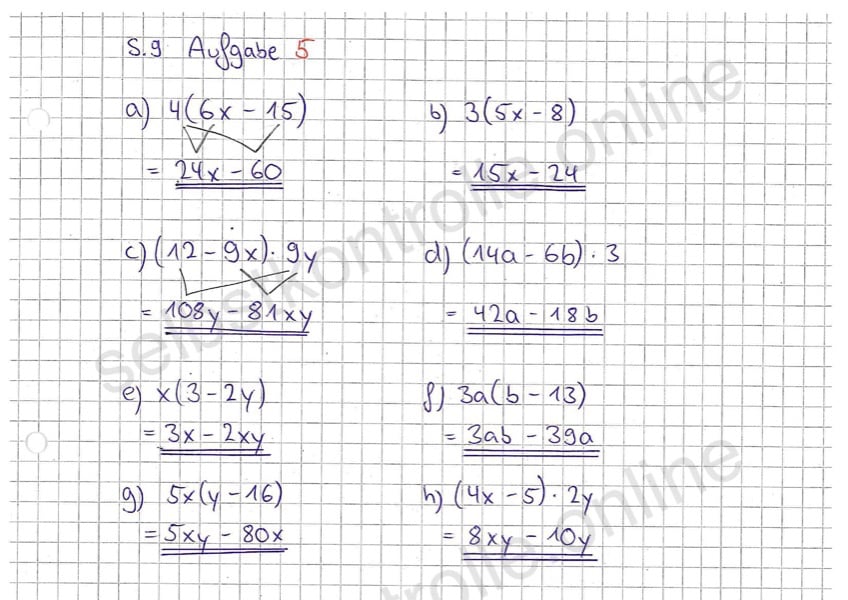 S.9 Aufgabe 5
a) 4(6x - 15)
= 24x - 60
b) 3(5x - 8)
= 15x - 24
c) (12 - 9x) · 9y
= 108y - 81xy
d) (14a - 6b) · 3
= 42a - 18b
e) x(3 - 2y)
= 3x - 2xy
f) 3a(b - 13)
= 3ab - 39a
g) 5x(y - 16)
= 5xy - 80x
h) (4x - 5) · 2y
= 8xy - 10y
selbstkontrolle.online
rolle.online